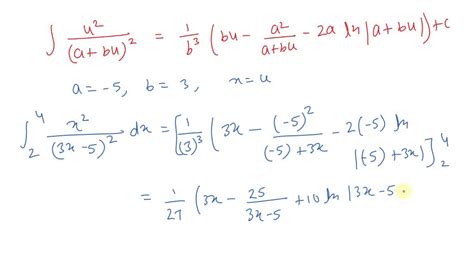 ∫ u²/(a+bu)² = 1/b³ (bu - a²/(a+bu) - 2a ln|a+bu|) + c
a = -5, b = 3, x = u
∫₂⁴ x²/(3x-5)² dx = [1/(3)³ (3x - (-5)²/((-5)+3x) - 2(-5) ln |(-5)+3x|)]₂⁴
= 1/27 (3x - 25/(3x-5) + 10 ln |3x-5